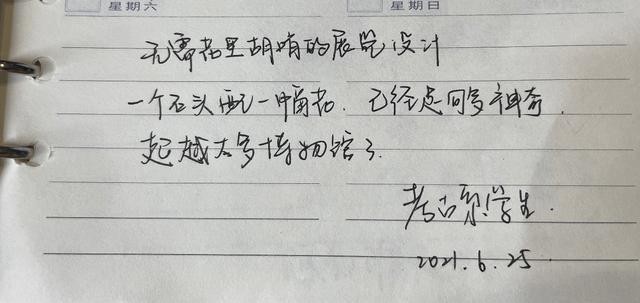 星期六 星期日
无需花里胡哨的展览设计
一个石头配一幅画,已经足够神奇,
超越太多博物馆了.
考古系学生.
2021.6.25.